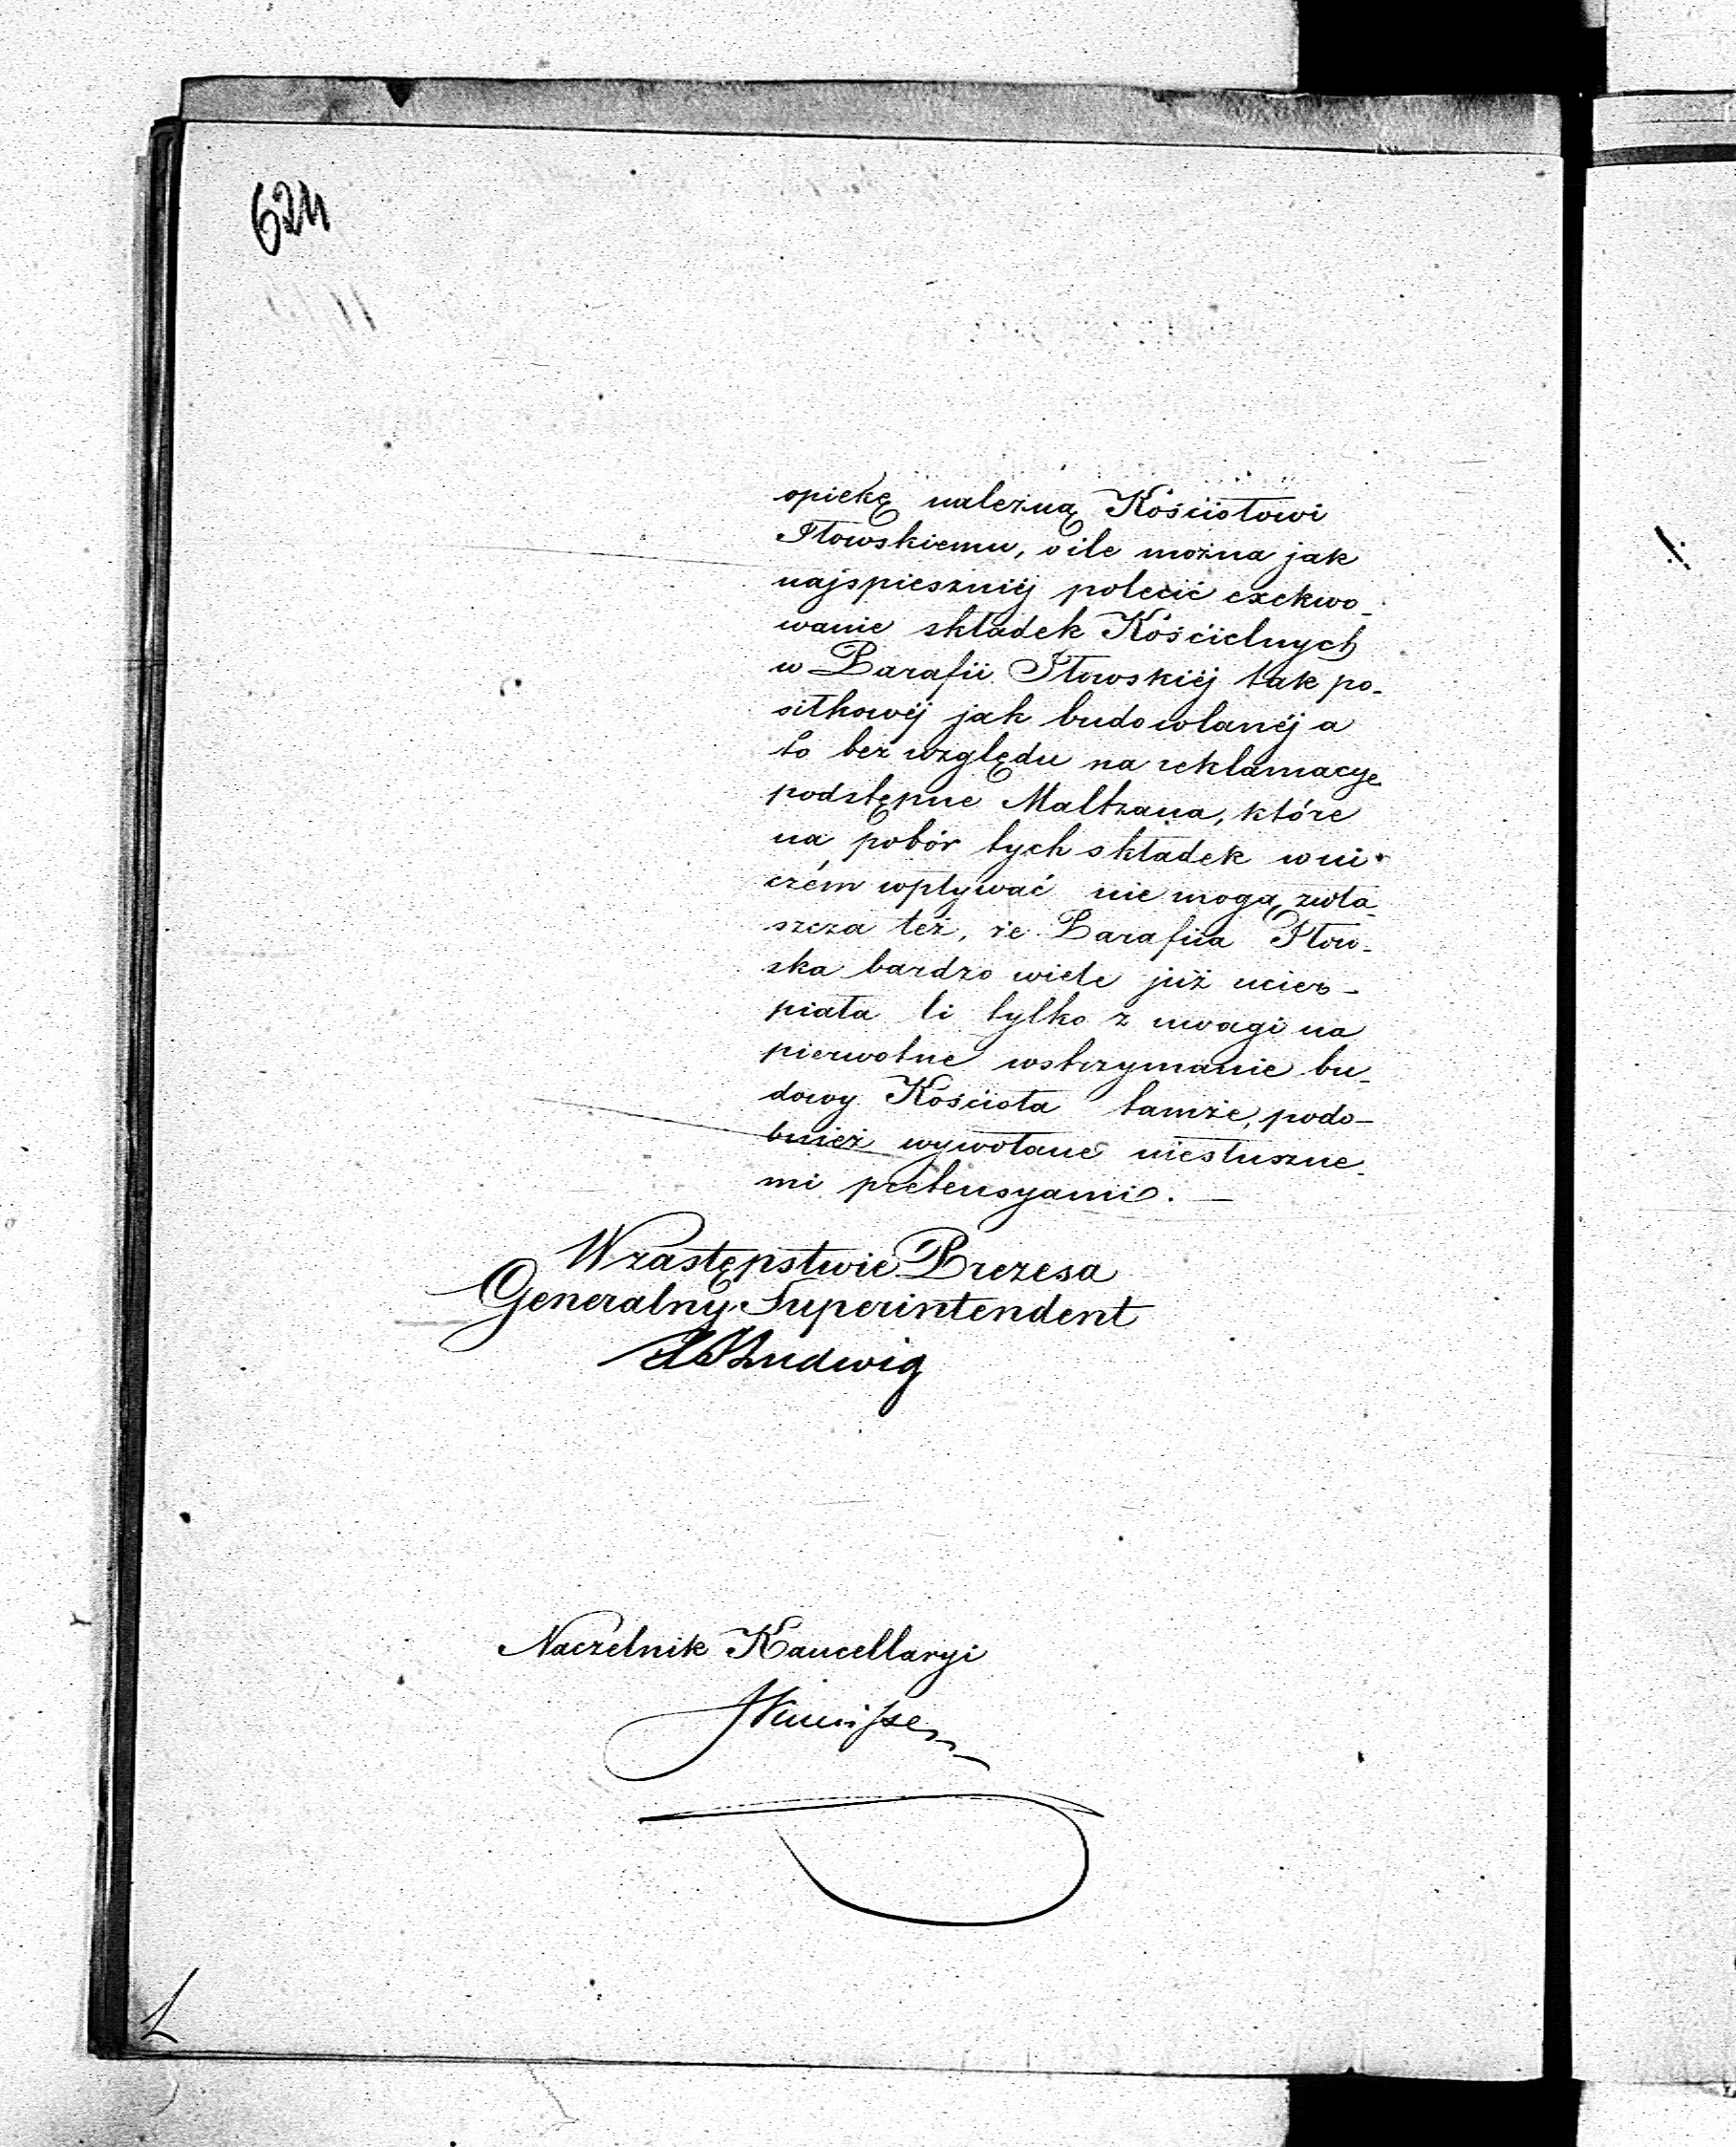 624
opiekę należną Kościołowi
Iłowskiemu, o ile można jak
najspieszniéj polecić exekwo-
wanie składek Kościelnych
w Parafii Iłowskiéj tak po-
siłkowéj jak budowlanéj a
to bez względu na reklamacye
podstępne Maltzana, które
na pobór tych składek w ni-
czém wpływać nie mogą, zwła-
szcza też, że Parafiia Iłow-
ska bardzo wiele już ucier-
piała li tylko z uwagi na
pierwotne wstrzymanie bu-
dowy Kościoła tamże, podo-
bnież wywołane niesłuszne-
mi pretensyami. —
W zastępstwie Prezesa
Generalny Superintendent
Ludwig
Naczelnik Kancellaryi